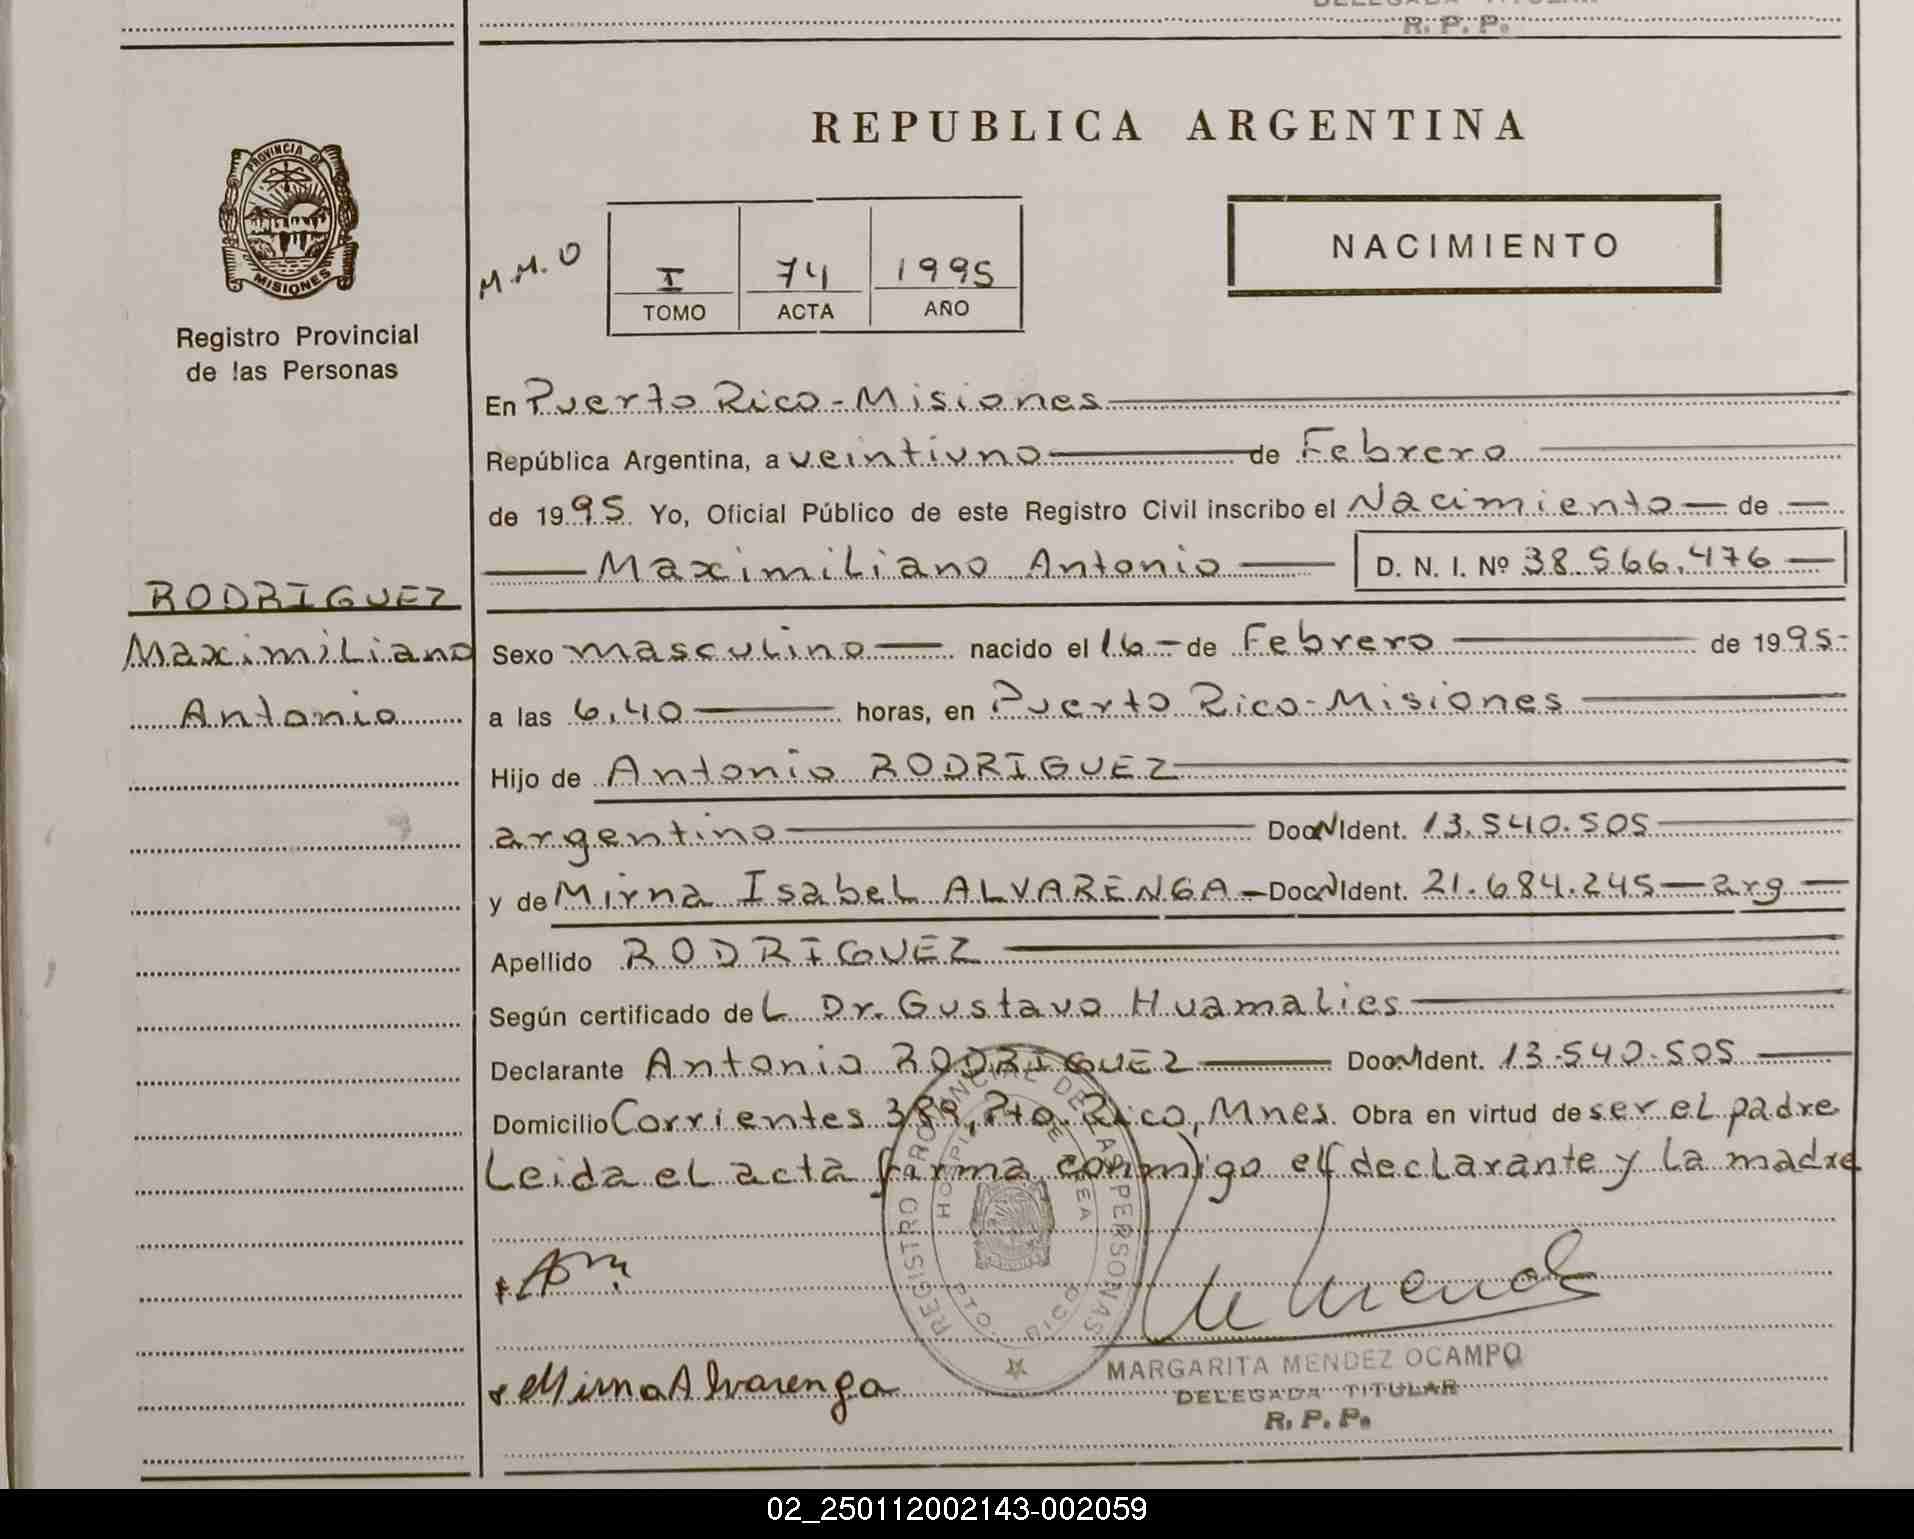 R. P. P.
REPUBLICA ARGENTINA
PROVINCIA DE
MISIONES
Registro Provincial
de las Personas
M.M.O
I 74 1995
TOMO ACTA AÑO
NACIMIENTO
En Puerto Rico - Misiones
República Argentina, a veintiuno de Febrero
de 1995. Yo, Oficial Público de este Registro Civil inscribo el Nacimiento de
Maximiliano Antonio D. N. I. Nº 38.566.476
RODRIGUEZ
Maximiliano
Antonio
Sexo masculino nacido el 16 - de Febrero de 1995-
a las 6,40 horas, en Puerto Rico - Misiones
Hijo de Antonio RODRIGUEZ
argentino Doc. Ident. 13.540.505
y de Mirna Isabel ALVARENGA - Doc. Ident. 21.684.245 - arg -
Apellido RODRIGUEZ
Según certificado del Dr. Gustavo Huamalies
Declarante Antonio RODRIGUEZ Doc. Ident. 13.540.505
Domicilio Corrientes 389, Pto. Rico, Mnes. Obra en virtud de ser el padre
Leida el acta firma conmigo el declarante y la madre
REGISTRO PROVINCIAL DE LAS PERSONAS
Mirna Alvarenga
MARGARITA MENDEZ OCAMPO
DELEGADA TITULAR
R. P. P.
02_250112002143-002059